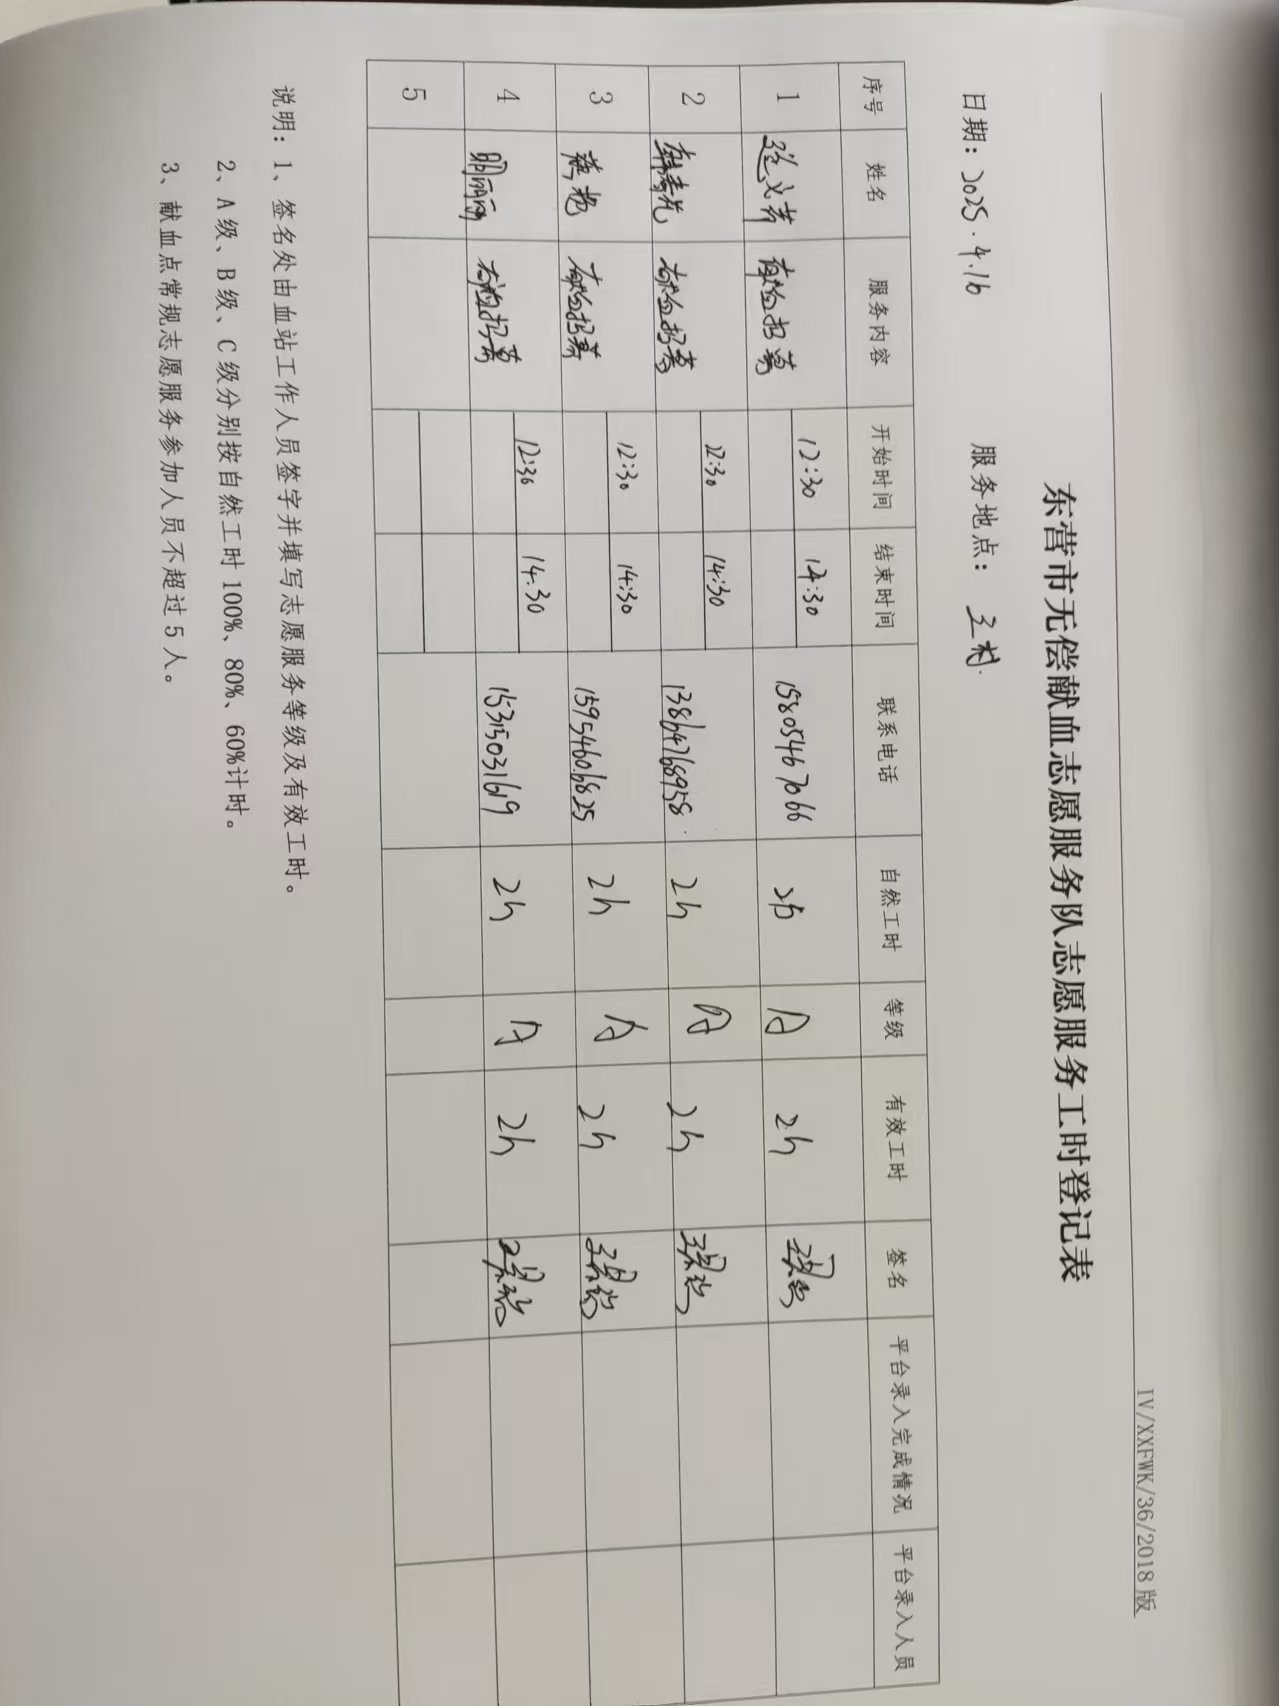 IV/XXFWK/36/2018版
东营市无偿献血志愿服务队志愿服务工时登记表
日期：2025.4.16 服务地点：
序号 姓名 服务内容 开始时间 结束时间 联系电话 自然工时 等级 有效工时 签名 平台录入完成情况 平台录入人员
1 献血招募 12:30 14:30 15805467066 2h A 2h
2 韩春光 献血招募 12:30 14:30 13864768958 2h A 2h
3 献血招募 12:30 14:30 15954606825 2h A 2h
4 献血招募 12:30 14:30 15315031619 2h A 2h
5
说明：1、签名处由血站工作人员签字并填写志愿服务等级及有效工时。
2、A级、B级、C级分别按自然工时100%、80%、60%计时。
3、献血点常规志愿服务参加人员不超过5人。